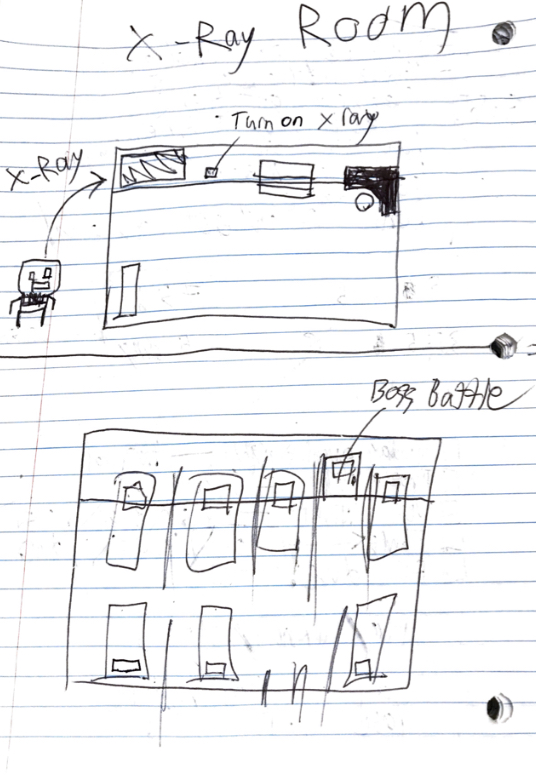 X-Ray Room
Turn on X ray
X-Ray
Boss Battle